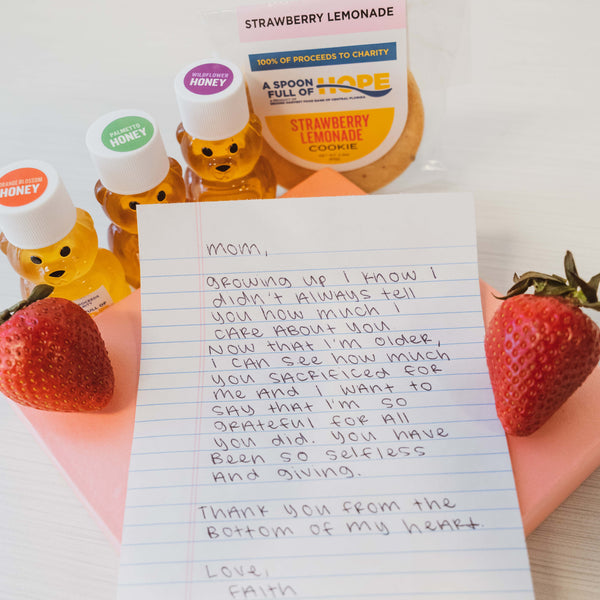 STRAWBERRY LEMONADE
100% OF PROCEEDS TO CHARITY
A SPOON
FULL OF HOPE
STRAWBERRY
LEMONADE
COOKIE
WILDFLOWER
HONEY
PALMETTO
HONEY
ORANGE BLOSSOM
HONEY
mom,
Growing up I know I
didn't always tell
you how much I
care about you.
Now that I'm older,
I can see how much
you sacrificed for
me and I want to
say that I'm so
grateful for all
you did. You have
been so selfless
and giving.
Thank you from the
bottom of my heart.
Love,
Faith